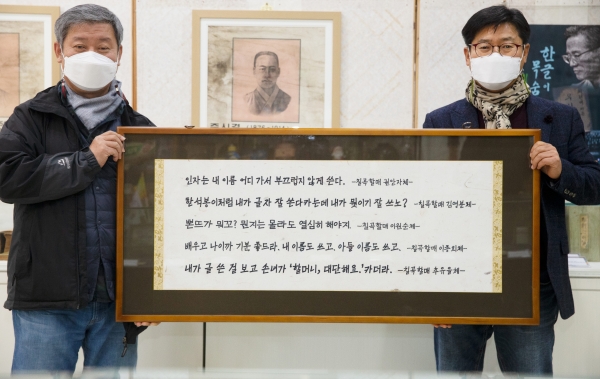 한글이
목숨
주시경
인자는 내 이름 어디 가서 부끄럽지 않게 쓴다. -칠곡할매 권안자체-
한석봉이처럼 내가 글자 잘 쓴다카는데 내가 뭣이기 잘 쓰노? -칠곡할매 김영분체-
뽄뜨가 뭐꼬? 뭔지는 몰라도 열심히 해야지. -칠곡할매 이원순체-
배우고 나이까 기분 좋드라. 내 이름도 쓰고, 아들 이름도 쓰고. -칠곡할매 이종희체-
내가 글 쓴 걸 보고 손녀가 '할머니, 대단해요.' 카더라. -칠곡할매 추유을체-